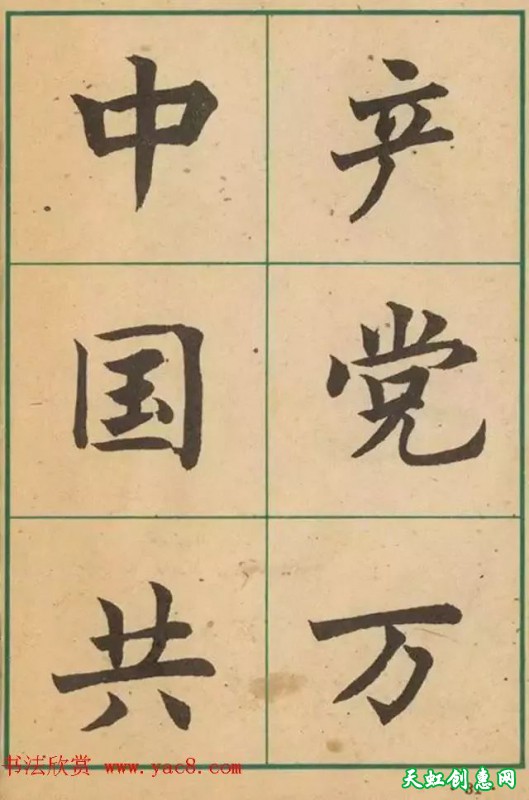 中国共
产党万
书法欣赏 www.yac8.com
天虹创惠网